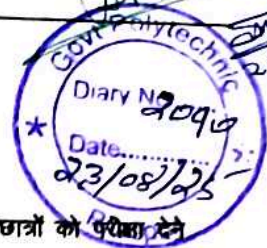 Govt Polytechnic
Diary No 2090
Date............
23/08/25
छात्रों को परीक्षा देने